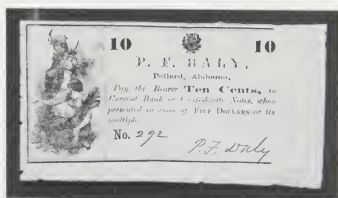 10 10
P. F. DALY,
Pollard, Alabama,
Pay the Bearer Ten Cents, in
Current Bank or Confederate Notes, when
presented in sums of FIVE DOLLARS or its
multiple.
No. 292
P. F. Daly